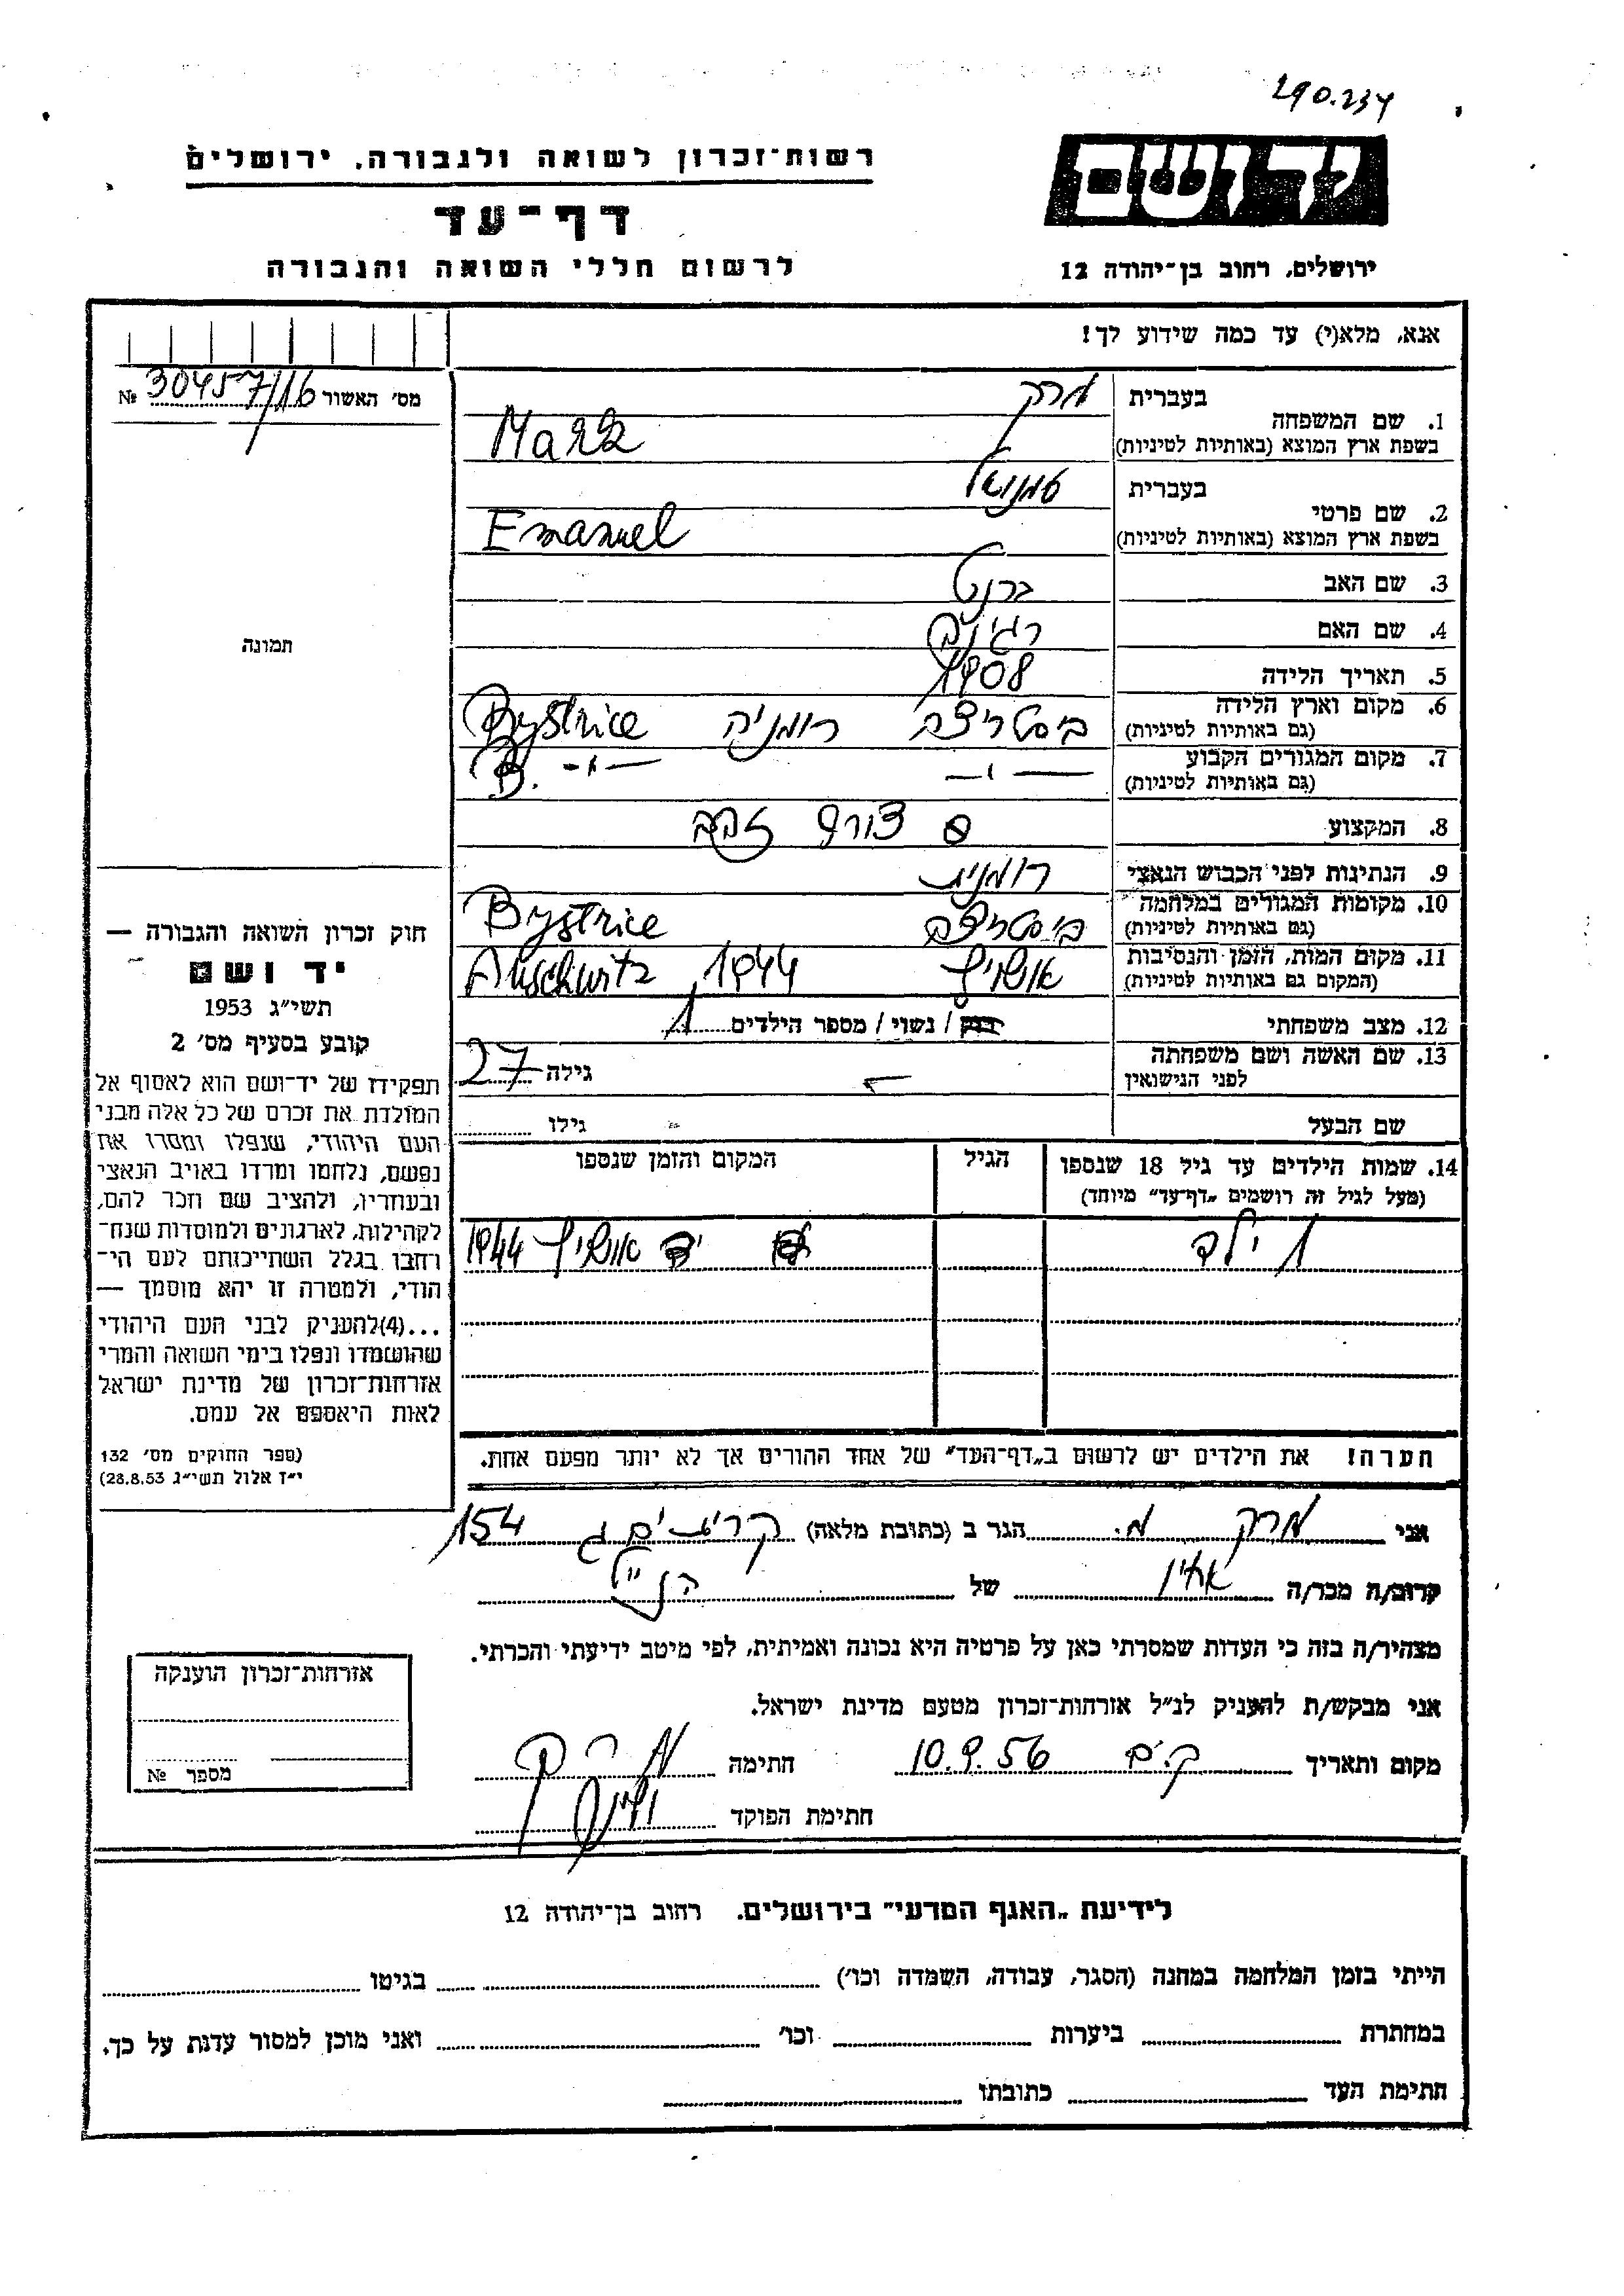 290.234
יד ושם
רשות־זכרון לשואה ולגבורה, ירושלים
דף־עד
לרשום חללי השואה והגבורה
ירושלים, רחוב בן־יהודה 12
אנא, מלא(י) עד כמה שידוע לך!
מס׳ האשור 30457/16 №
תמונה
1. שם המשפחה בעברית מרק
בשפת ארץ המוצא (באותיות לטיניות) Mark
2. שם פרטי בעברית עמנואל
בשפת ארץ המוצא (באותיות לטיניות) Emanuel
3. שם האב ברנט
4. שם האם רגינה
5. תאריך הלידה 1908
6. מקום וארץ הלידה ביסטריצה רומניה Bystrice
(גם באותיות לטיניות)
7. מקום המגורים הקבוע —״— B. —״—
(גם באותיות לטיניות)
8. המקצוע צורף זהב
9. הנתינות לפני הכבוש הנאצי רומנית
10. מקומות המגורים במלחמה ביסטריצה Bystrice
(גם באותיות לטיניות)
11. מקום המות, הזמן והנסיבות אושויץ 1944 Auschwitz
(המקום גם באותיות לטיניות)
12. מצב משפחתי רווק / נשוי / מספר הילדים 1
13. שם האשה ושם משפחתה
לפני הנישואין גילה 27
שם הבעל גילו
14. שמות הילדים עד גיל 18 שנספו הגיל המקום והזמן שנספו
(מעל לגיל זה רושמים „דף־עד״ מיוחד)
1 ילד אושויץ 1944
הערה! את הילדים יש לרשום ב„דף־העד״ של אחד ההורים אך לא יותר מפעם אחת.
חוק זכרון השואה והגבורה —
יד ושם
תשי״ג 1953
קובע בסעיף מס׳ 2
תפקידו של יד־ושם הוא לאסוף אל
המולדת את זכרם של כל אלה מבני
העם היהודי, שנפלו ומסרו את
נפשם, נלחמו ומרדו באויב הנאצי
ובעוזריו, ולהציב שם וזכר להם,
לקהילות, לארגונים ולמוסדות שנח־
רבו בגלל השתייכותם לעם הי־
הודי, ולמטרה זו יהא מוסמך —
...(4)להעניק לבני העם היהודי
שהושמדו ונפלו בימי השואה והמרי
אזרחות־זכרון של מדינת ישראל
לאות היאספם אל עמם.
(ספר החוקים מס׳ 132
י״ז אלול תשי״ג 28.8.53)
אני מרק מ. הגר ב (כתובת מלאה) קרית ים ג 154
קרוב/ה מכר/ה אחיו של הנ״ל
מצהיר/ה בזה כי העדות שמסרתי כאן על פרטיה היא נכונה ואמיתית, לפי מיטב ידיעתי והכרתי.
אני מבקש/ת להעניק לנ״ל אזרחות־זכרון מטעם מדינת ישראל.
מקום ותאריך ק.ים 10.9.56 חתימה מרק
חתימת הפוקד
אזרחות־זכרון הוענקה
מספר №
לידיעת „האגף המדעי״ בירושלים. רחוב בן־יהודה 12
הייתי בזמן המלחמה במחנה (הסגר, עבודה, השמדה וכו׳) בגיטו
במחתרת ביערות וכו׳ ואני מוכן למסור עדות על כך.
חתימת העד כתובתו